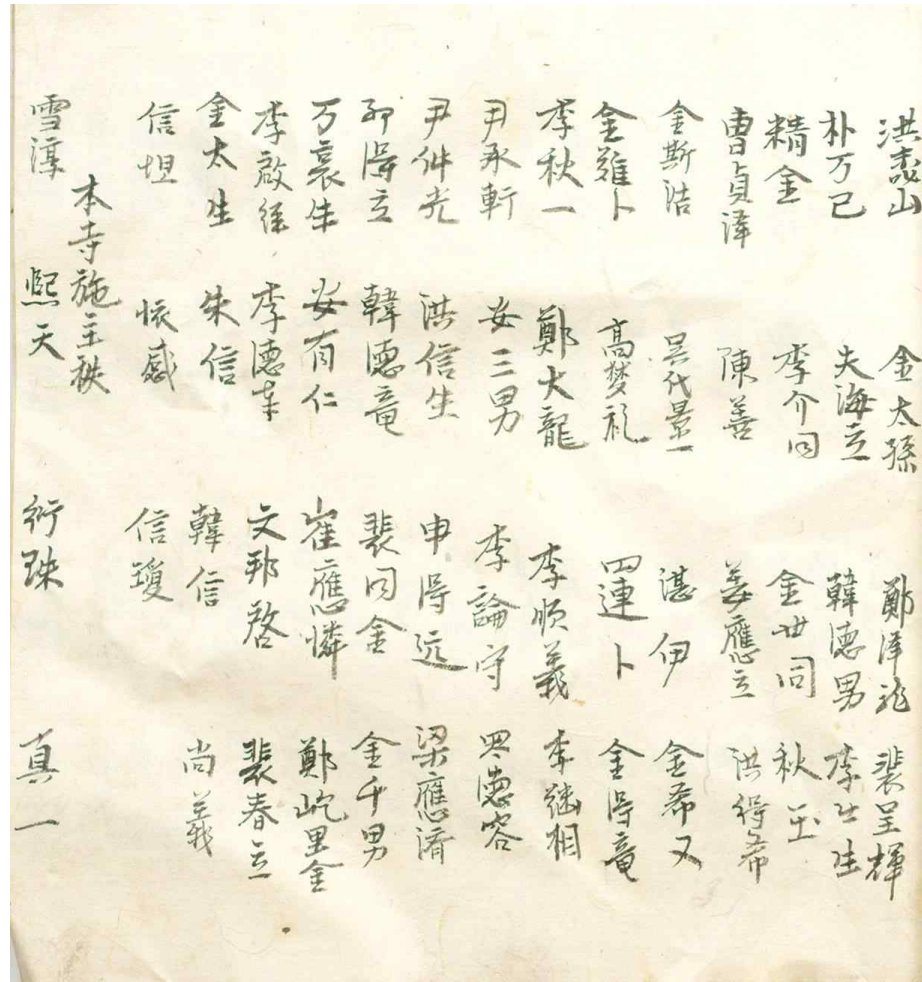 洪泰山 金太孫 鄭澤龍 裴呈輝
朴万己 夫海立 韓德男 李生
精金 李介同 金世同 秋玉
曹貞澤 陳善 姜應立 洪得希
金斯浩 吳代景 湛伊 金希又
金雄卜 高梦礼 四連卜 金得竜
李秋一 鄭大龍 李順義 李繼相
尹永軒 安三男 李論守 德容
尹件光 洪信生 申得远 梁應濟
得立 韓德竜 裴同金 金千男
万衰朱 安有仁 崔應憐 鄭屹里金
李啟 李德 文邦啓 裴春立
金太生 朱信 韓信 尚義
信坦 懷感 信瓊
本寺施主秩
雪淳 熙天 衍珠 真一